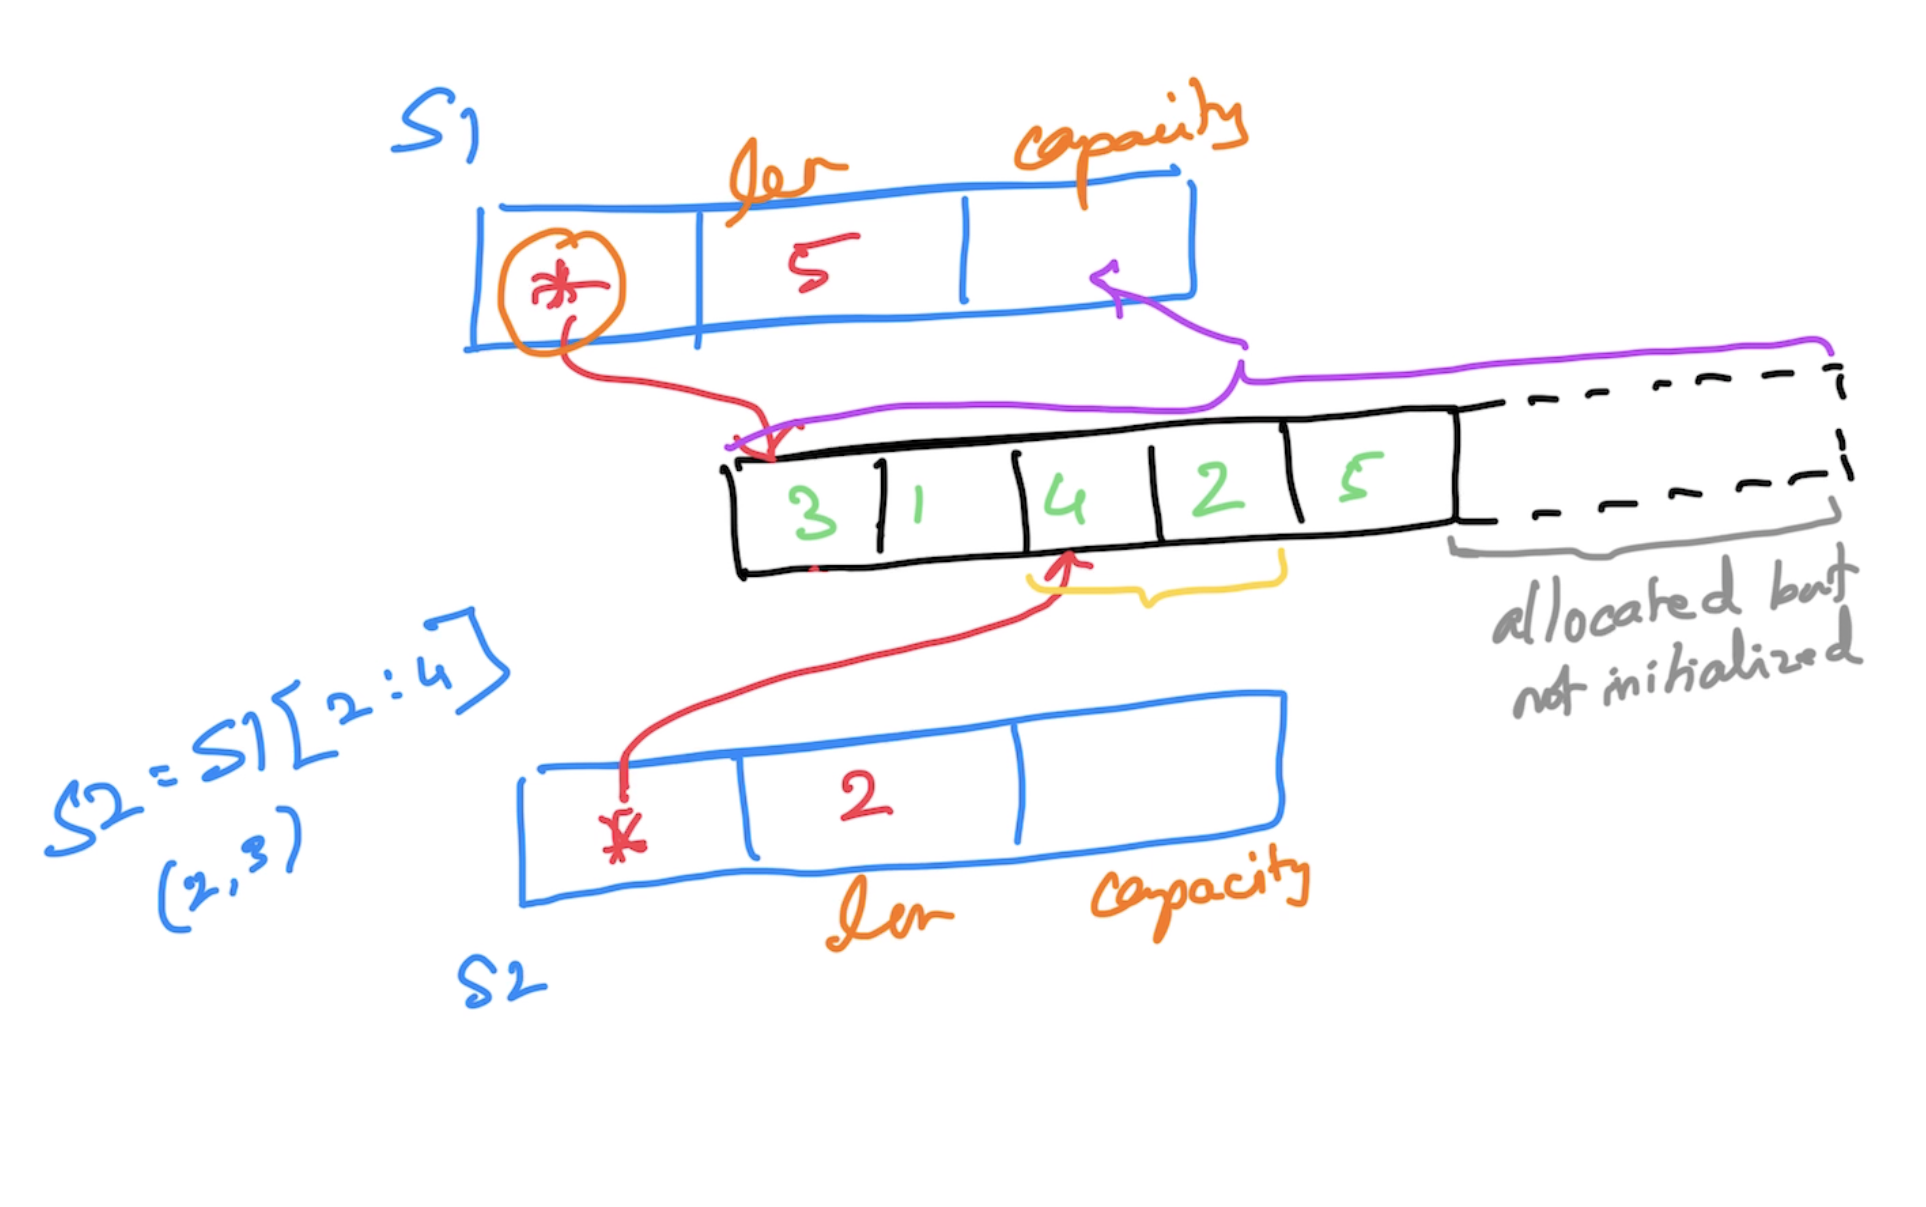 S1
len capacity
* 5
3 1 4 2 5
allocated but
not initialized
S2 = S1[2:4]
(2,3)
* 2
len capacity
S2